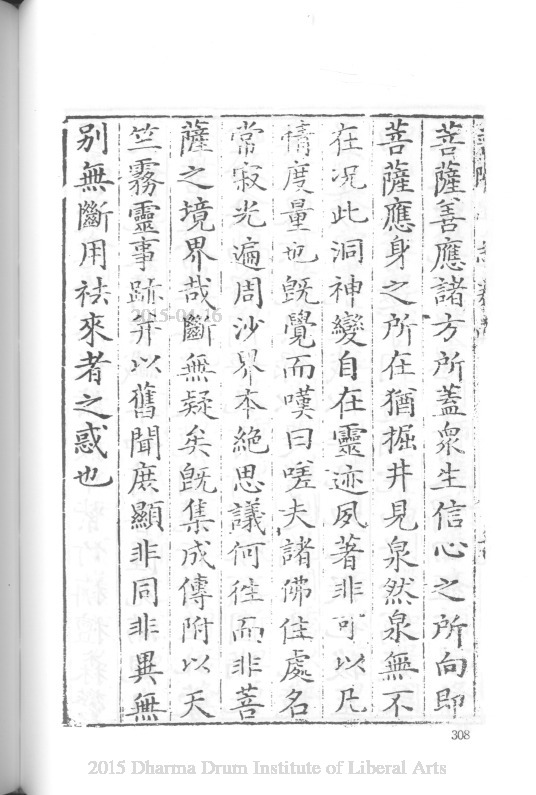 菩薩善應諸方所蓋衆生信心之所向即
菩薩應身之所在猶掘井見泉然泉無不
在况此洞神變自在靈迹夙著非可以凡
情度量也既覺而嘆曰嗟夫諸佛住處名
常寂光遍周沙界本絶思議何徃而非菩
薩之境界哉斷無疑矣既集成傳附以天
竺霧靈事跡并以舊聞庶顯非同非異無
别無斷用祛來者之惑也
308
2015-04-16
2015 Dharma Drum Institute of Liberal Arts